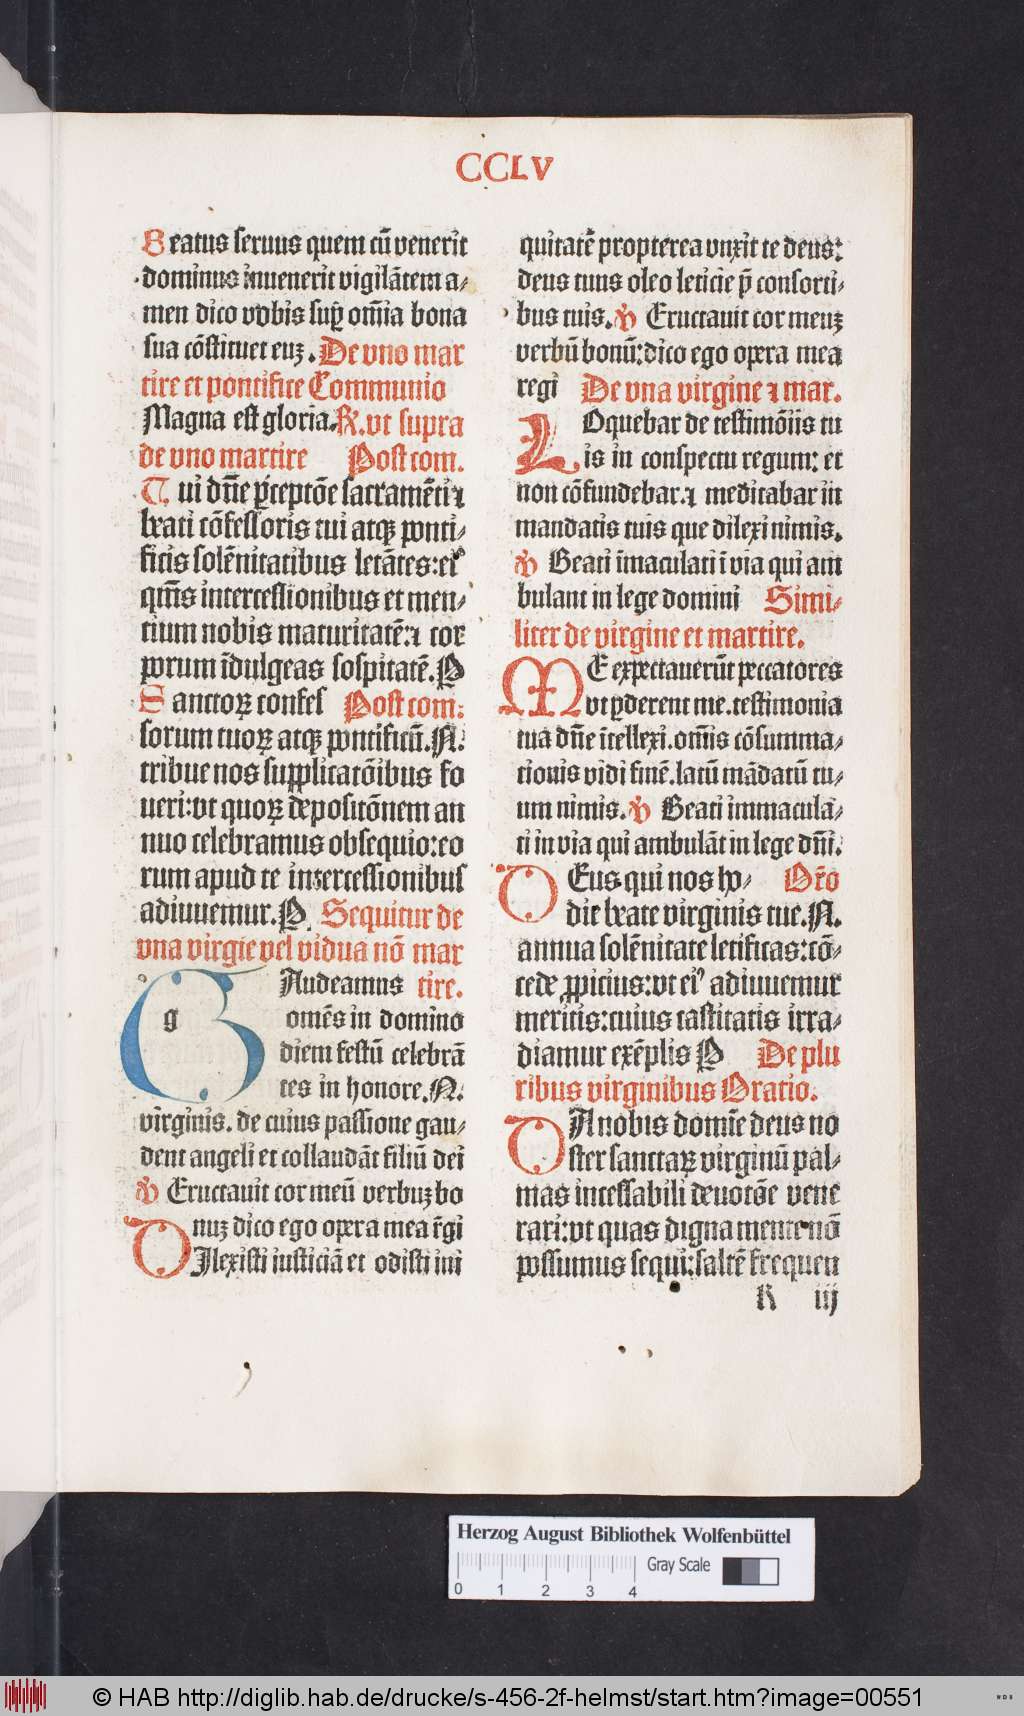 CCLV
Beatus seruus quem cū venerit
dominus invenerit vigilātem a⸗
men dico vobis suꝑ om̄ia bona
sua cōstituet euꝫ. De vno mar
tire et pontifice Communio
Magna est gloria. R̷. vt supra
de vno martire Post com.
Tui dn̄e ꝑceptōe sacramēti ⁊
beati cōfessoris tui atqꝫ ponti⸗
ficis solēnitatibus letātes: eiꝰ
qm̄s intercessionibus et men⸗
tium nobis maturitatē: ⁊ cor
porum īdulgeas sospitatē. P
Sanctoꝝ confes Post com:
sorum tuoꝝ atqꝫ pontificū. N.
tribue nos supplicatōibus fo
ueri: vt quoꝝ depositōnem an
nuo celebramus obsequio: eo
rum apud te intercessionibus
adiuuemur. P. Sequitur de
vna virgīe vel vidua nō mar
GAudeamus tire.
g omēs in domino
diem festū celebrā
tes in honore. N.
virginis. de cuius passione gau⸗
dent angeli et collaudāt filiū dei
℣ Eructauit cor meū verbuꝫ bo
nuꝫ dico ego opera mea r̄gi
DIlexisti iusticiā et odisti ini
quitatē propterea vnxit te deus:
deus tuus oleo leticie p̄ consorti⸗
bus tuis. ℣ Eructauit cor meuꝫ
verbū bonū: dico ego opera mea
regi De vna virgine ⁊ mar.
LOquebar de testimōiis tu
is in conspectu regum: et
non cōfundebar. ⁊ meditabar in
mandatis tuis que dilexi nimis.
℣ Beati īmaculati ī via qui am
bulant in lege domini Simi⸗
liter de virgine et martire.
ME expectauerūt peccatores
vt ꝑderent me. testimonia
tua dn̄e ītellexi. om̄is cōsumma⸗
tionis vidi finē. latū mādatū tu⸗
um nimis. ℣ Beati immaculā⸗
ti in via qui ambulāt in lege dn̄i.
DEus qui nos ho⸗ Or̄o
die beate virginis tue. N.
annua solēnitate letificas: cō⸗
cede ꝓpicius: vt eiꝰ adiuuemur
meritis: cuius castitatis irra⸗
diamur exēplis P De plu
ribus virginibus Oratio.
DA nobis domīe deus no
ster sanctaꝝ virginū pal⸗
mas incessabili deuotōe vene
rari: vt quas digna mente nō
possumus sequi: saltē frequen
R iij
Herzog August Bibliothek Wolfenbüttel
0 1 2 3 4 Gray Scale
© HAB http://diglib.hab.de/drucke/s-456-2f-helmst/start.htm?image=00551